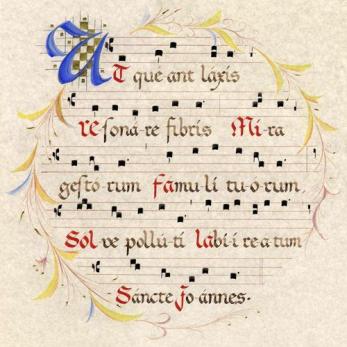 UT que ant láxis
resoná·re fibris Mi·ra
gestó·rum fámu·li tu·ó·rum,
Sol·ve pollú·ti lábi·i re·a·tum
Sáncte Jo·ánnes·